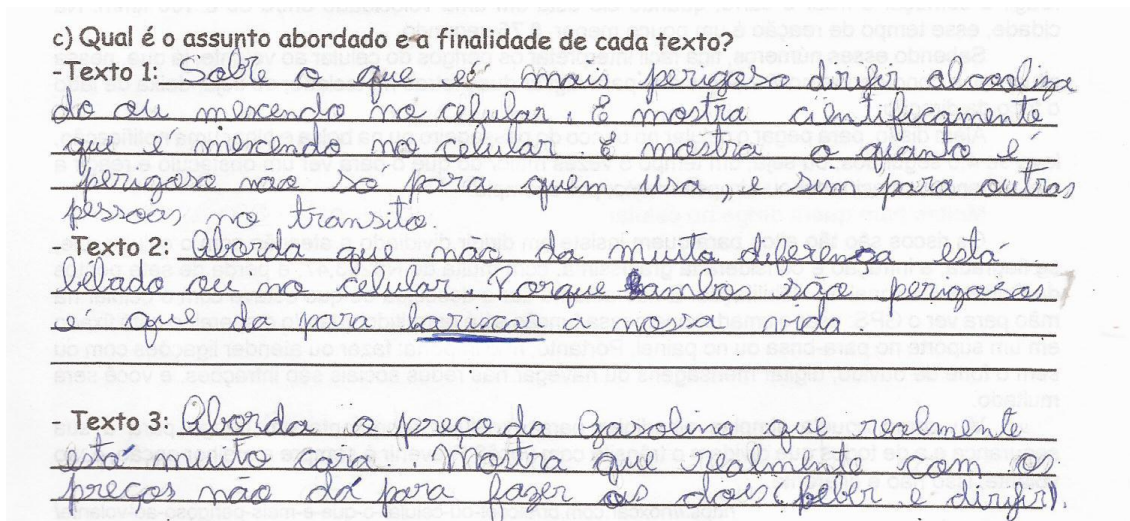 c) Qual é o assunto abordado e a finalidade de cada texto?
- Texto 1: Sobre o que é mais perigoso dirijir alcooliza
do ou mexendo no celular. E mostra cientificamente
que e mexendo no celular. E mostra o quanto é
perigoso não so para quem usa, e sim para outras
pessoas no transito.
- Texto 2: Aborda que não da muita diferensa está
bebado ou no celular. Porque ambos são perigosos
e é que da para lariscar a nossa vida.
- Texto 3: Aborda o preço da Gasolina que realmente
está muito cara. Mostra que realmente com os
preços não dá para fazer os dois (beber e dirijir).